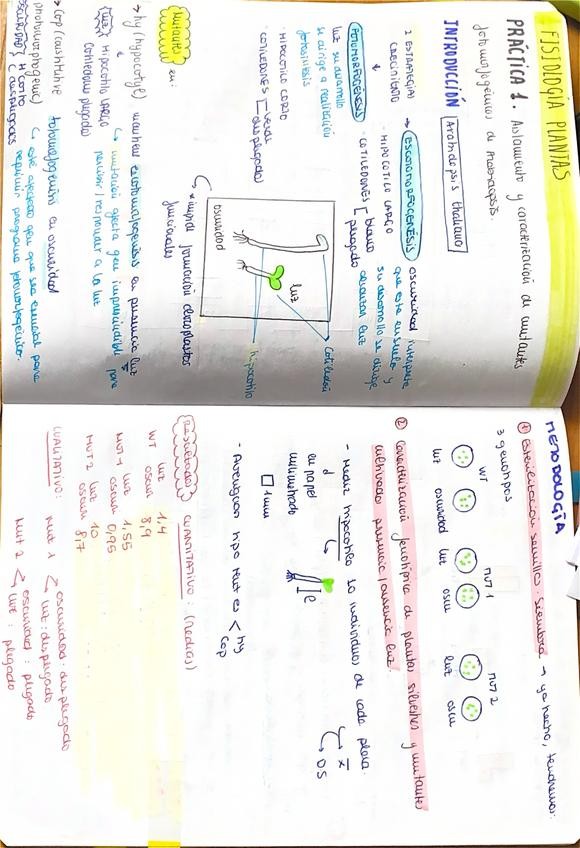 FISIOLOGÍA PLANTAS
PRÁCTICA 1. Aislamiento y caracterización de mutantes
fotomorfogénicos de Arabidopsis.
INTRODUCCIÓN Arabidopsis thaliana
2 ESTRATEGIAS
CRECIMIENTO
→ ESCOTOMORFOGÉNESIS oscuridad interpreta
que está en suelo y
su desarrollo se dirige
alcanzar luz
· HIPOCOTILO LARGO
· COTILEDONES blanco
plegado
FOTOMORFOGÉNESIS
luz su desarrollo
se dirige a realización
fotosíntesis
· HIPOCOTILO CORTO
· COTILEDONES verde
desplegado
oscuridad
luz
Cotiledón
hipocotilo
formación cloroplastos
funcionales
Mutantes en:
→ hy (hypocotyl) muestran escotomorfogénesis en presencia luz
(LUZ) HIPOCOTILO LARGO
Cotiledones plegado
mutación afecta gen imprescindible para
percibir/responder a la luz
→ Cop (constitutive
photomorphogenic)
fotomorfogénesis en oscuridad
(OSCURIDAD) H corto
C desplegados
está afectado gen que sea esencial para
reprimir programa fotomorfogénico.
METODOLOGÍA
① Esterilización semillas. Siembra → ya hecho, tendremos:
3 genotipos
WT
MUT 1
MUT 2
luz oscuridad luz oscu luz oscu
② Caracterización fenotípica de plantas silvestres y mutantes
cultivadas presencia/ausencia luz.
- Medir hipocotilo 10 individuos de cada placa.
en papel
milimetrado
□ 1mm
x̄
DS
- Averiguar tipo Mut es < hy
Cop
Resultados
CUANTITATIVO: (medias)
WT luz 1,4
oscu 8,9
MUT 1 luz 1,55
oscu 0,95
MUT 2 luz 10
oscu 8,7
CUALITATIVO:
Mut 1 < oscuridad: desplegado
luz: desplegado
Mut 2 < oscuridad: plegado
luz: plegado